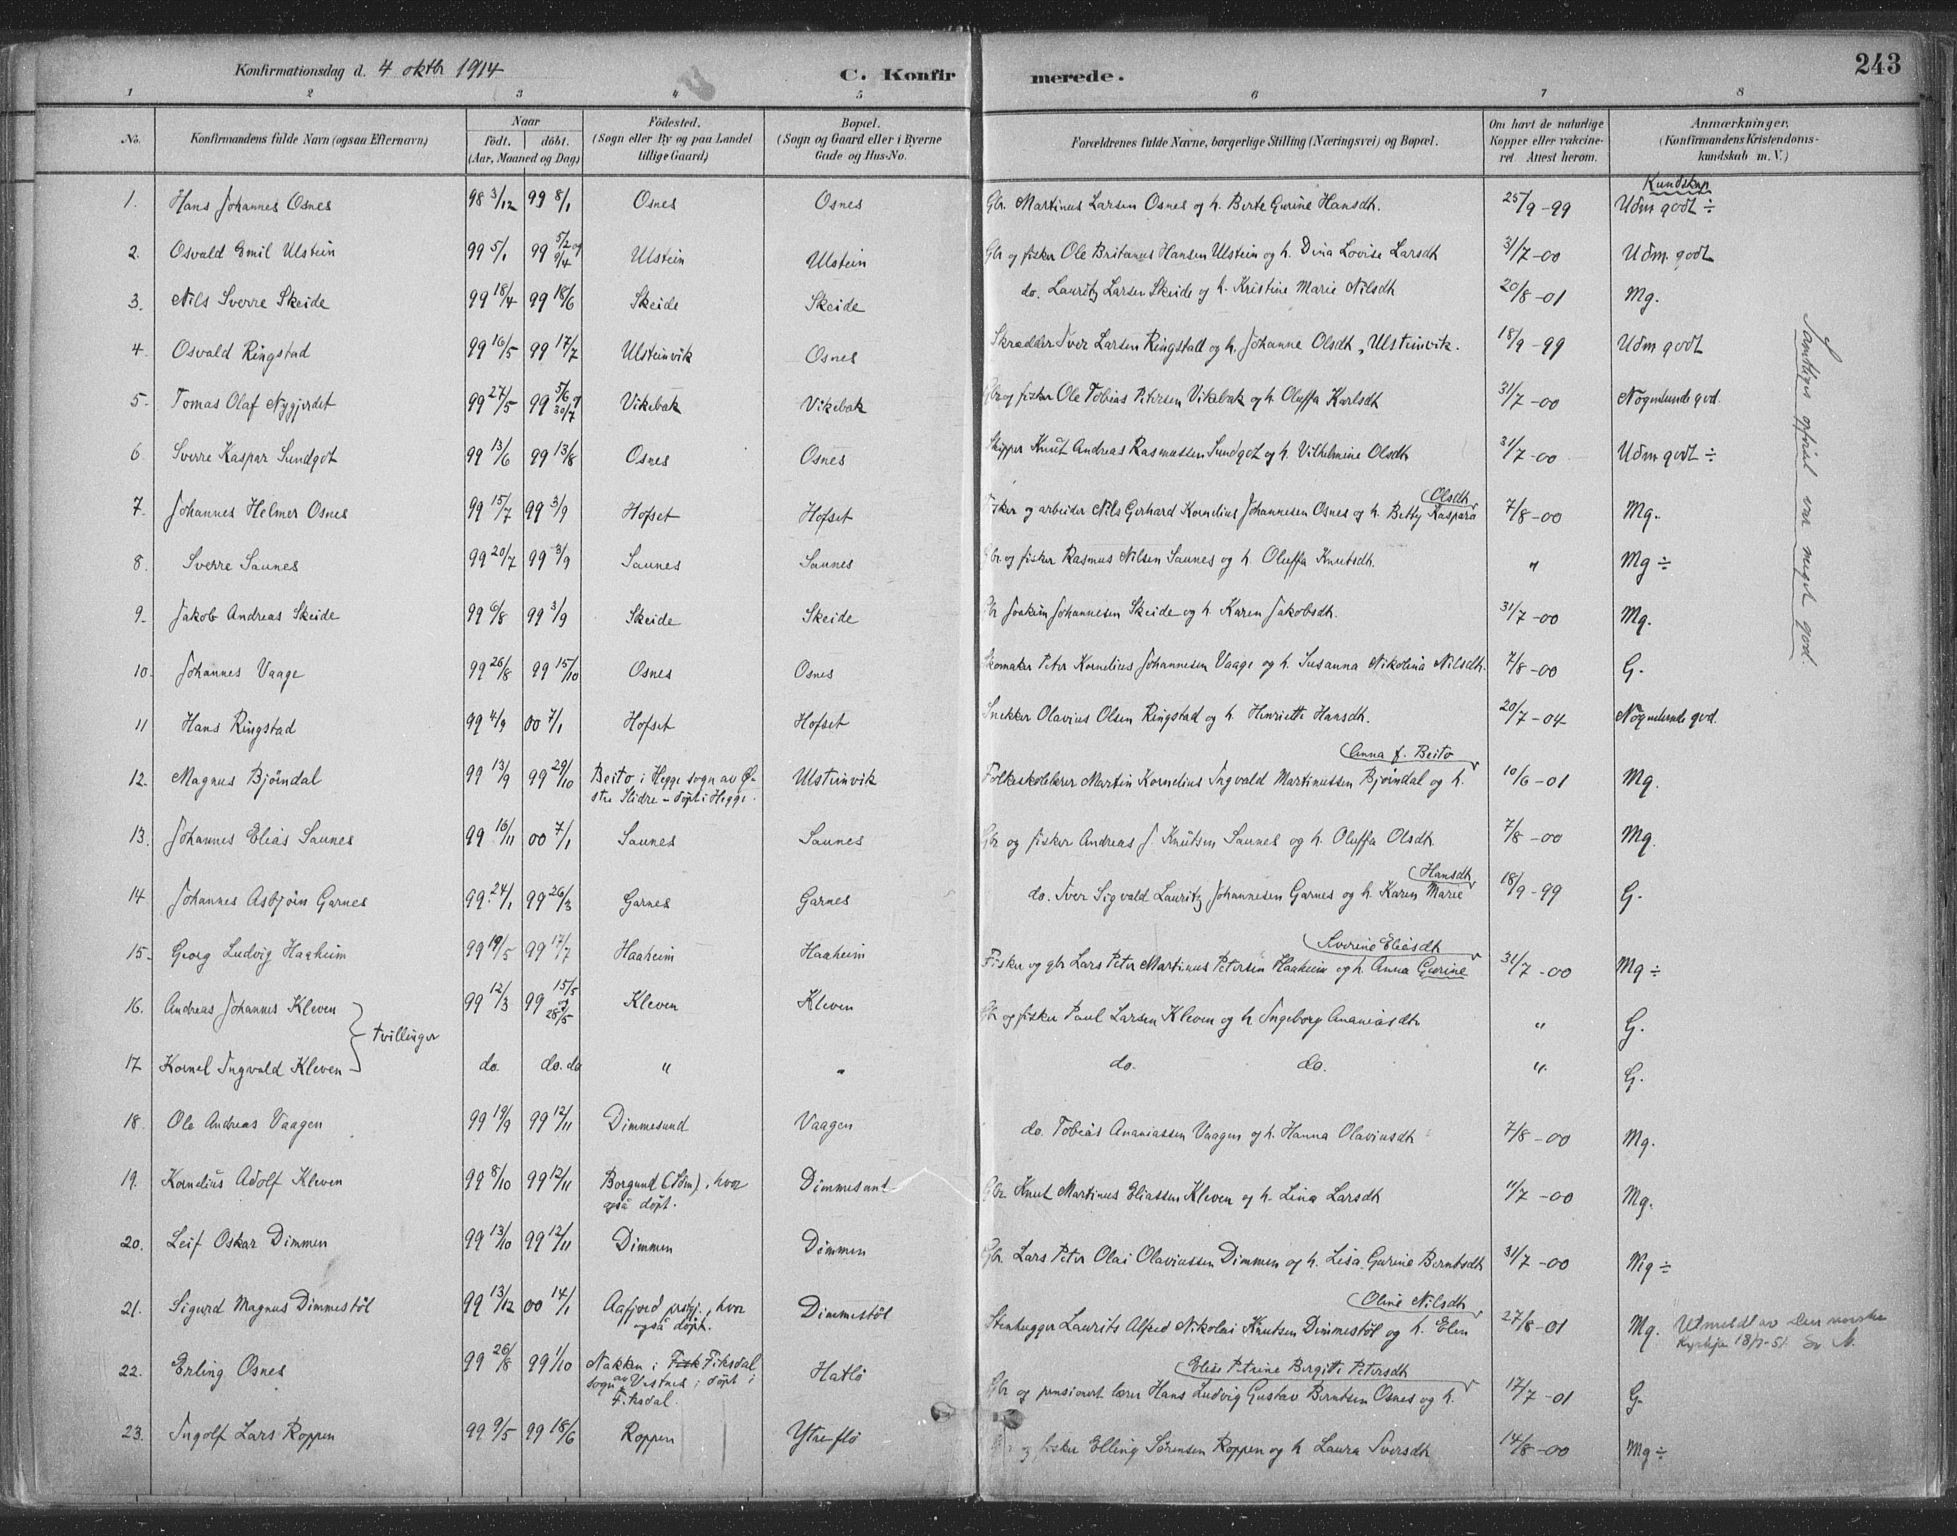 243
Konfirmationsdag d. 4 oktbr 1914
C. Konfirmerede.
1 2 3 4 5 6 7 8
No. Konfirmandens fulde Navn (ogsaa Efternavn) Naar födt. döbt. (Aar, Maaned og Dag) Födested. (Sogn eller By og paa Landet tillige Gaard) Bopæl. (Sogn og Gaard eller i Byerne Gade og Hus-No. Forældrenes fulde Navne, borgerlige Stilling (Næringsvei) og Bopæl. Om havt de naturlige Kopper eller vaccineret Attest herom. Anmærkninger. (Konfirmandens Kristendomskundskab m. V.)
Kundskap
1. Hans Johannes Osnes 98 3/12 99 8/1 Osnes Osnes Gbr. Martinus Larsen Osnes og h. Berte Gurine Hansdt. 25/9-99 Udm godt ÷
2. Osvald Emil Ulstein 99 5/1 99 5/2 og 9/4 Ulstein Ulstein Gbr og fisker Ole Britanus Hansen Ulstein og h. Dina Lovise Larsdt 31/7-00 Udm godt
3. Nils Sverre Skeide 99 18/4 99 18/6 Skeide Skeide do. Lauritz Larsen Skeide og h. Kristine Marie Nilsdt 20/8-01 Mg.
4. Osvald Ringstad 99 16/5 99 17/7 Ulsteinvik Osnes Skrædder Iver Larsen Ringstad og h. Johanne Olsdt, Ulsteinvik. 18/9-99 Udm godt
5. Tomas Olaf Nygjerdet 99 27/5 99 5/6 og 30/7 Vikebak Vikebak Gbr og fisker Ole Tobias Petersen Vikebak og h. Oluffa Karlsdt 31/7-00 Nogenlunde god.
6 Sverre Kaspar Sundgot 99 13/6 99 13/8 Osnes Osnes Skipper Knut Andreas Rasmussen Sundgot og h. Vilhelmine Olsdt 31/7-00 Udm godt ÷
7. Johannes Helmer Osnes 99 15/7 99 3/9 Hofset Hofset Fisker og arbeider Nils Gerhard Kornelius Johannesen Osnes og h. Betty Kaspara Olsdt 7/8-00 Mg.
8. Sverre Saunes 99 20/7 99 3/9 Saunes Saunes Gbr. og fisker Rasmus Nilsen Saunes og h. Oluffa Knutsdt. " Mg ÷
9. Jakob Andreas Skeide 99 6/8 99 3/9 Skeide Skeide Gbr Joakim Johannesen Skeide og h. Karen Jakobsdt. 31/7-00 Mg.
10. Johannes Vaage 99 26/8 99 15/10 Osnes Osnes Skomaker Peter Kornelius Johannesen Vaage og h. Susanna Nikolina Nilsdt. 7/8-00 G.
11 Hans Ringstad 99 4/9 00 7/1 Hofset Hofset Snekker Olavius Olsen Ringstad og h. Henriette Hansdt. 20/7-04 Nogenlunde god.
12. Magnus Bjöindal 99 13/9 99 29/10 Beito i Hegge sogn av Østre Slidre - döpt i Hegge. Ulsteinvik Folkeskolelærer Martin Kornelius Ingvald Martinussen Bjöindal og h. Anna f. Beito 10/6-01 Mg.
13. Johannes Elias Saunes 99 16/11 00 7/1 Saunes Saunes Gbr og fisker Andreas J. Knutsen Saunes og h. Oluffa Olsdt. 7/8-00 Mg.
14 Johannes Asbjörn Garnes 99 24/1 99 26/3 Garnes Garnes do. Iver Sigvald Lauritz Johannesen Garnes og h. Karen Marie Hansdt 18/9-99 G.
15. Georg Ludvig Haaheim 99 19/5 99 17/7 Haaheim Haaheim Fisker og gbr Lars Peter Martinus Petersen Haaheim og h. Anna Gurine Severine Eliasdt 31/7-00 Mg ÷
16. Andreas Johannes Kleven 99 12/3 99 15/5 og 28/5 Kleven Kleven Gbr og fisker Paul Larsen Kleven og h. Ingeborg Ananiasdt. " G.
tvillinger
17 Kornel Ingvald Kleven do. do. do " " do. do. " G.
18. Ole Andreas Vaagen 99 19/9 99 12/11 Dimmesund Vaagen do. Tobias Ananiassen Vaagen og h. Hanna Olaviusdt 7/8-00 Mg.
19. Kornelius Adolf Kleven 99 8/10 99 12/11 Borgund (Sdm), hvor også döpt. Dimmesund Gbr. Knut Martinus Eliassen Kleven og h. Lina Larsdt 11/7-00 Mg.
20. Leif Oskar Dimmen 99 13/10 99 12/11 Dimmen Dimmen Gbr. Lars Peter Olai Olaviussen Dimmen og h. Lisa Gurine Berntsdt 31/7-00 Mg ÷
21. Sigurd Magnus Dimmestöl 99 13/12 00 14/1 Aafjord prstgj., hvor også döpt. Dimmestöl Stenhugger Laurits Alfred Nikolai Knutsen Dimmestöl og h. Elen Oline Nilsdt 27/8-01 Mg. Utmeldt av den norske Kyrkja 18/7-51
22. Erling Osnes 99 26/8 99 1/10 Nakken i Fiksdal sogn av Vestnes; döpt i Fiksdal. Hatlö Gbr og pensionert lærer Hans Ludvig Gustav Berntsen Osnes og h. Elise Petrine Birgitte Petersdt 17/7-01 G.
23. Ingolf Lars Roppen 99 9/5 99 18/6 Roppen Ytre flö Gbr og fisker Elling Sörensen Roppen og h. Laura Iversdt 14/8-00 Mg ÷
Samtliges opförsel var meget god.